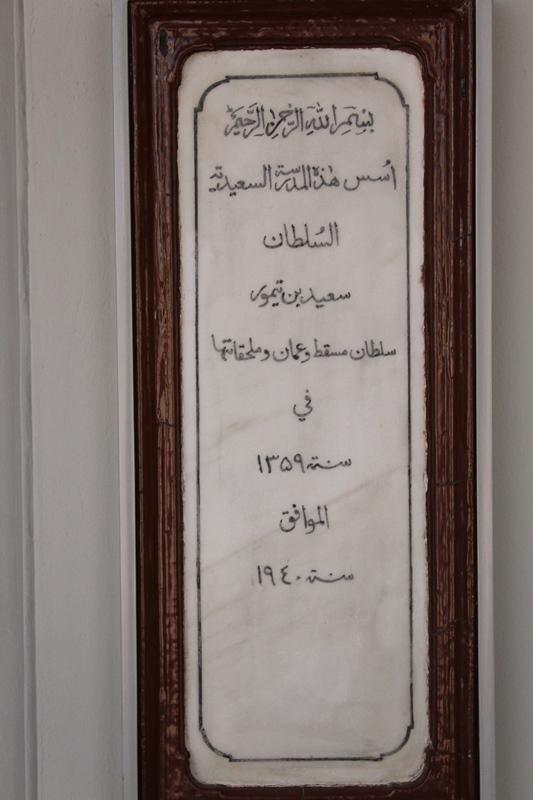 بِسْمِ اللهِ الرَّحْمٰنِ الرَّحِيْمِ
أسس هذه المدرسة السعيدية
السُلطان
سعيد بن تيمور
سلطان مسقط وعمان وملحقاتها
في
سنة ١٣٥٩
الموافق
سنة ١٩٤٠